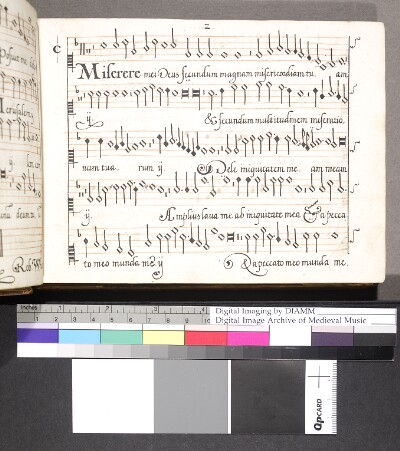 2
C
Miserere mei Deus secundum magnam misericordiam tu. am
ij. & secundum multitudinem miseratio.
num tua. rum ij. Dele iniquitatem me am meam
ij. Amplius lava me ab iniquitate mea & a pecca
to meo munda me ij & a peccato meo munda me.
Rob W
inches 1 2 3 4 5 6 7
cm 1 2 3 4 5 6 7 8 9 10
Digital Imaging by DIAMM
Digital Image Archive of Medieval Music
QPCARD